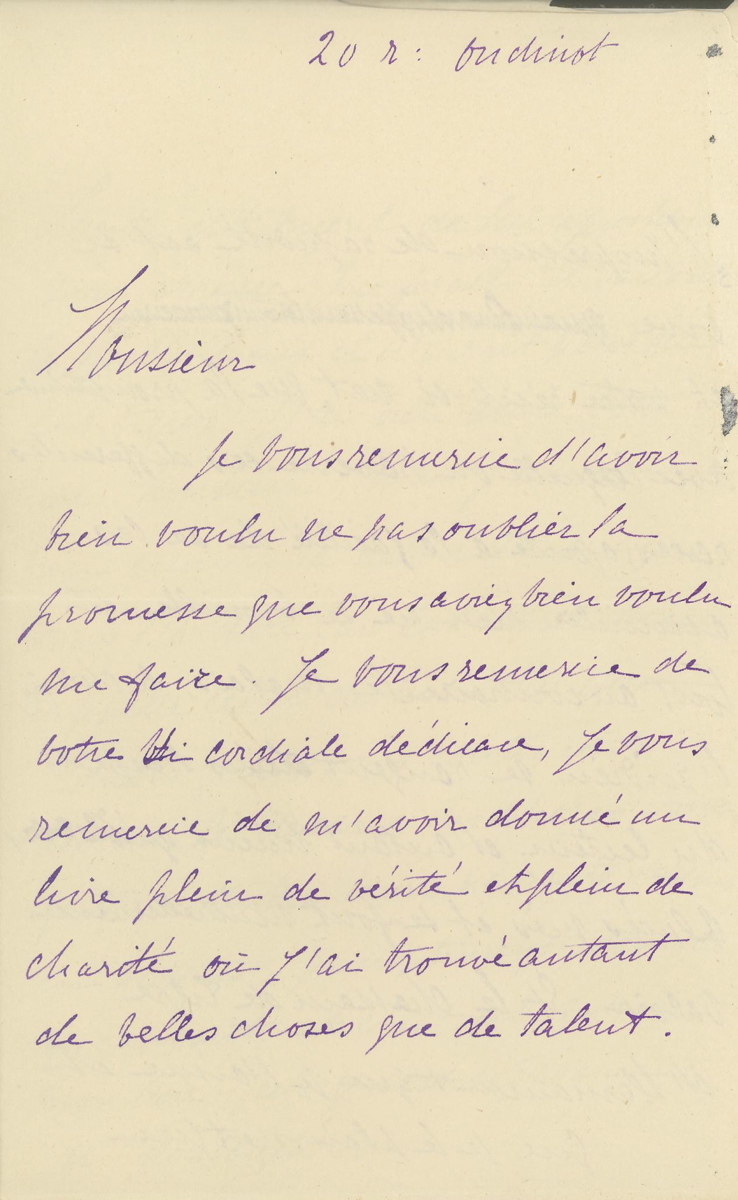 20 r: Oudinot
Monsieur
Je vous remercie d'avoir
bien voulu ne pas oublier la
promesse que vous aviez bien voulu
me faire. Je vous remercie de
votre si cordiale dédicace, Je vous
remercie de m'avoir donné un
livre plein de vérité et plein de
charité où j'ai trouvé autant
de belles choses que de talent.